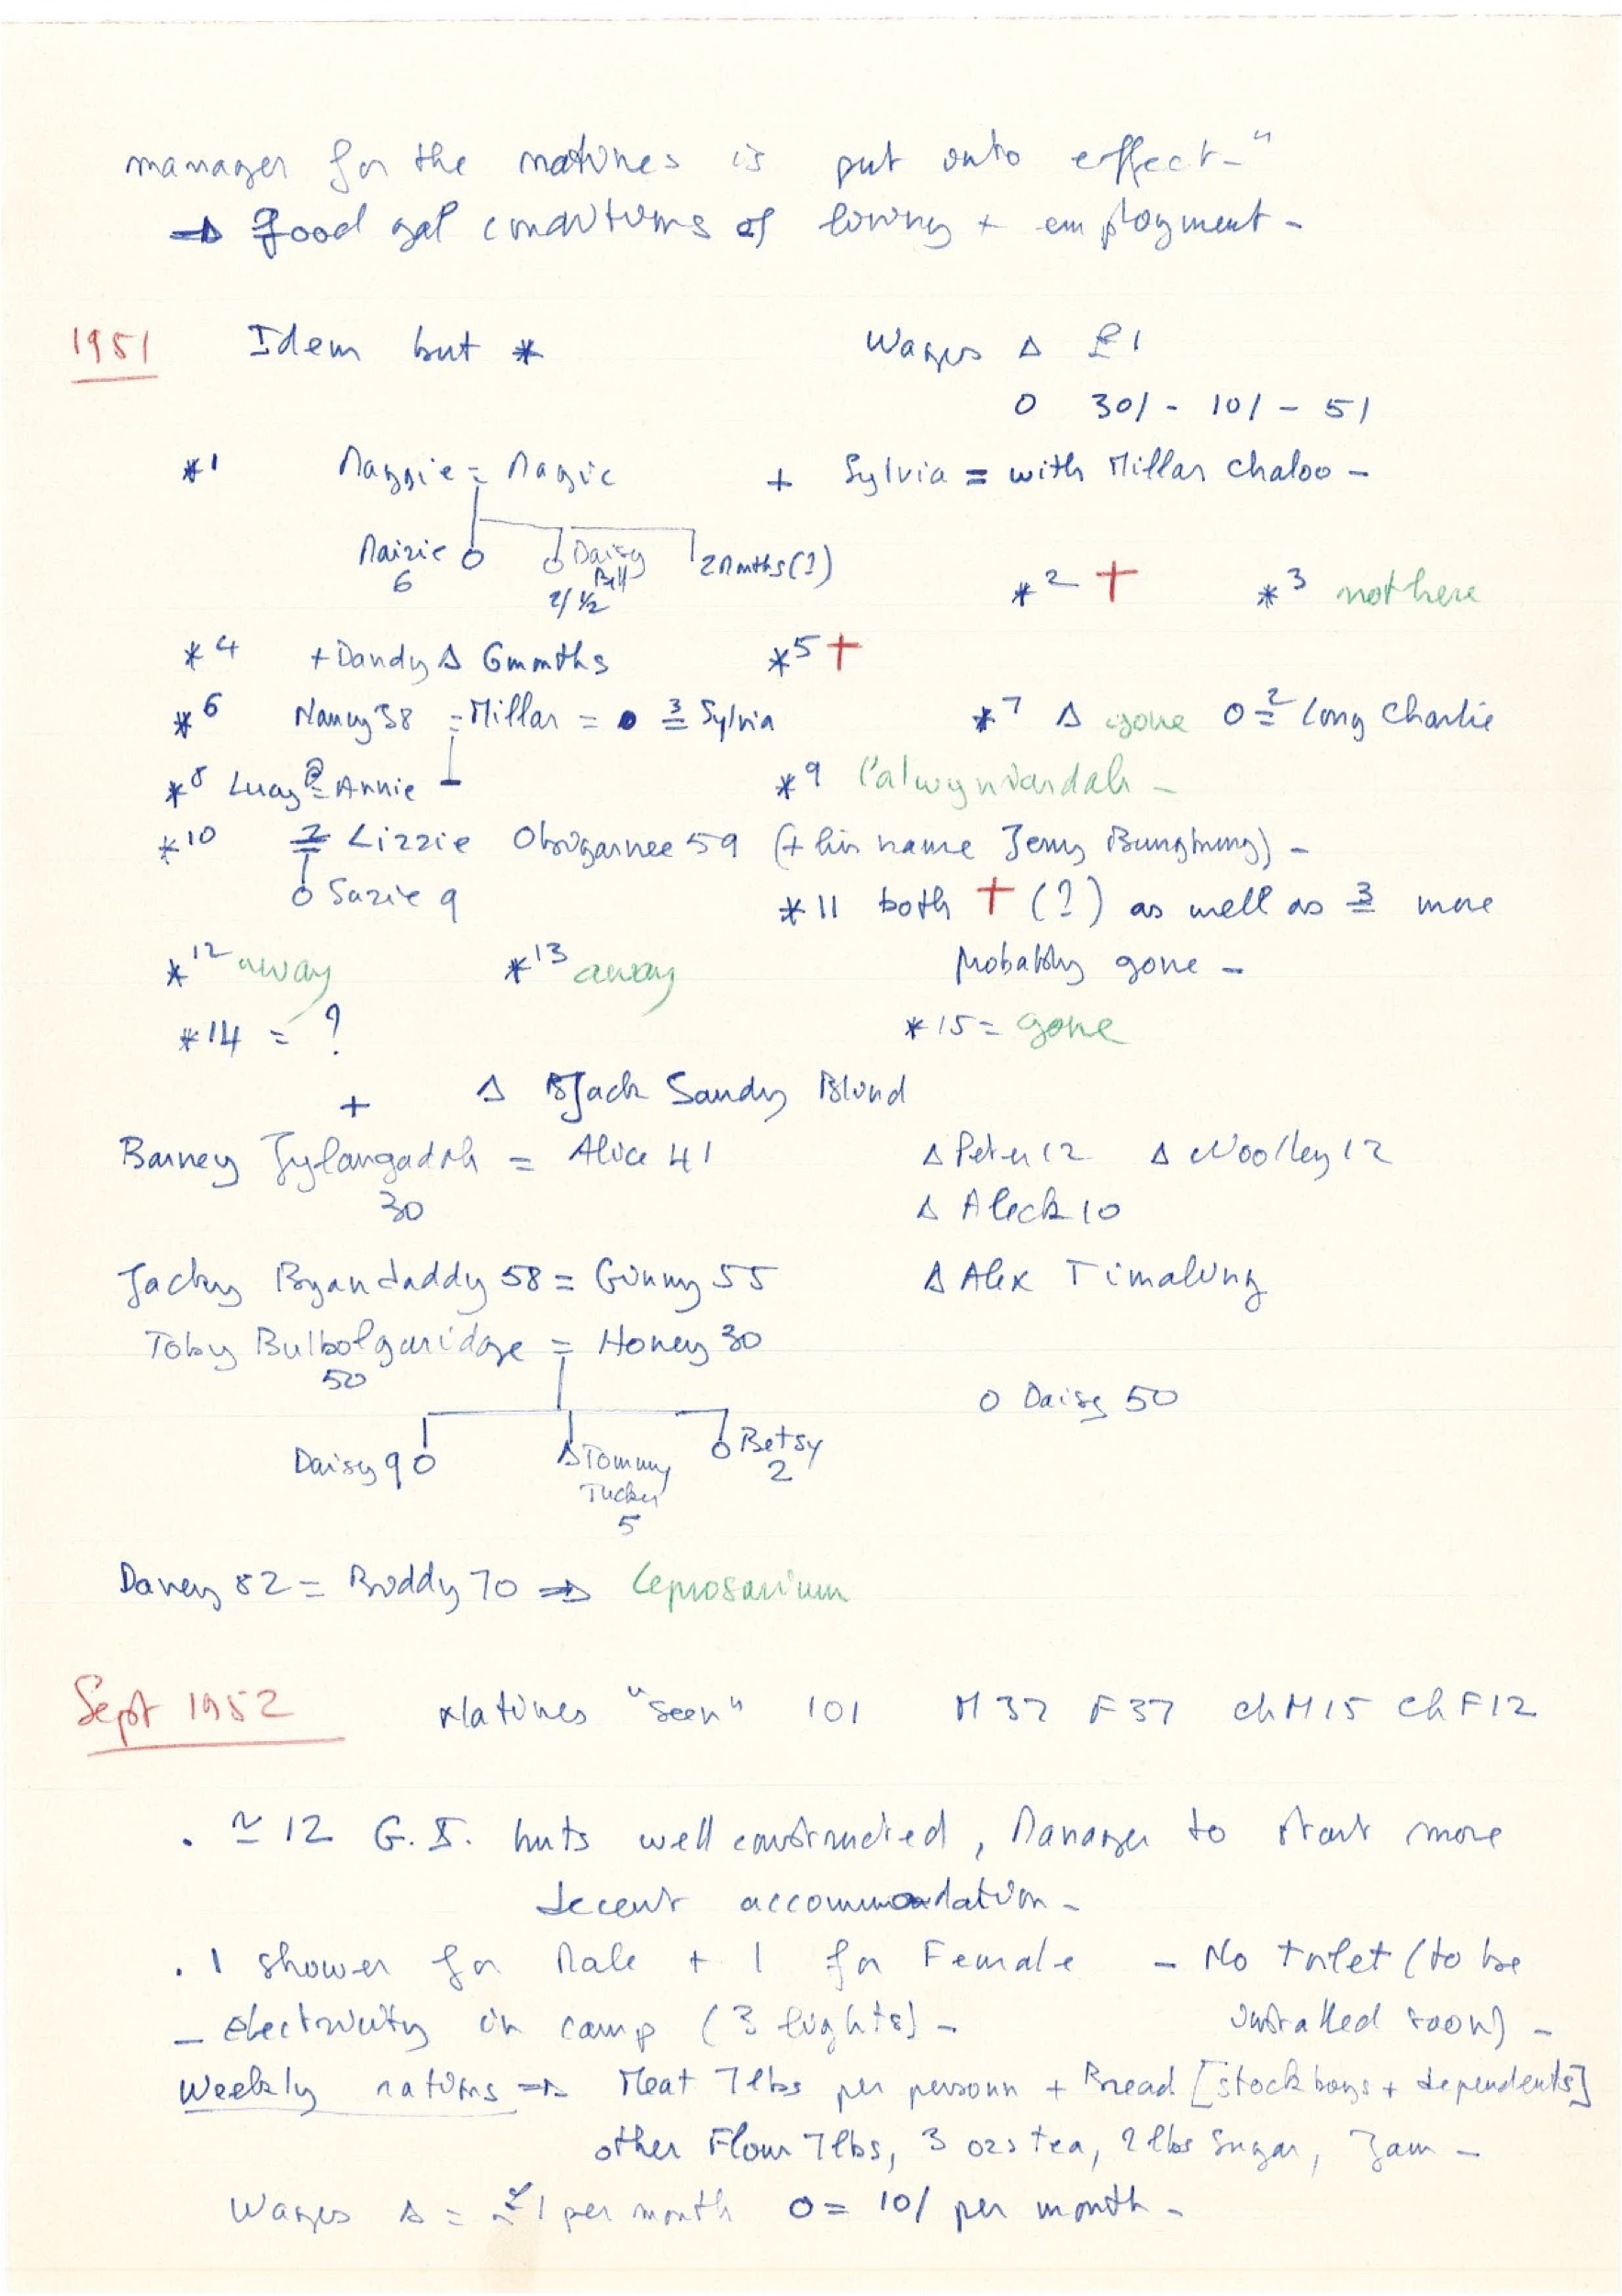 manager for the natives is put into effect-"
⇒ good gal conditions of living + employment -
1951 Idem but * Wages Δ £1
O 30/ - 10/ - 5/
*1 Maggie = Magic + Sylvia = with Millar Chaloo -
Maizie O O Daisy 2 Mnths (?)
6 Bell
2/ ½
*2 † *3 not here
*4 + Dandy Δ 6 mnths *5 †
*6 Nancy 38 = Millar = 3 Sylvia *7 Δ gone O =2 Long Charlie
*8 Lucy @ Annie *9 Calwynyardah -
*10 2= Lizzie 59 (+ his name Jerry Bungbung) -
O Suzie 9 *11 both † (?) as well as 3 more
*12 away *13 away probably gone -
*14 = ? *15 = gone
+ Δ Jack Sandy Blind
Barney Jylangadah = Alice 41 Δ Peter 12 Δ Woolley 12
30 Δ Aleck 10
Jacky Byandaddy 58 = Ginny 55 Δ Alex Timalung
Toby Bulbolgaridge = Honey 30
50 O Daisy 50
Daisy 9 O Δ Tommy O Betsy
Tucker 2
5
Davey 82 = Biddy 70 ⇒ Leprosarium
Sept 1952 Natives "seen" 101 M 37 F 37 ch M 15 Ch F 12
. ≃ 12 G. I. huts well constructed, Manager to start more
decent accommodation -
. 1 shower for Male + 1 for Female - No toilet (to be
- Electricity in camp (3 lights) - installed soon) -
Weekly rations ⇒ Meat 7 lbs per personn + Bread [stockboys + dependents]
other Flour 7 lbs, 3 ozs tea, 2 lbs Sugar, Jam -
Wages Δ = £1 per month O = 10/ per month -